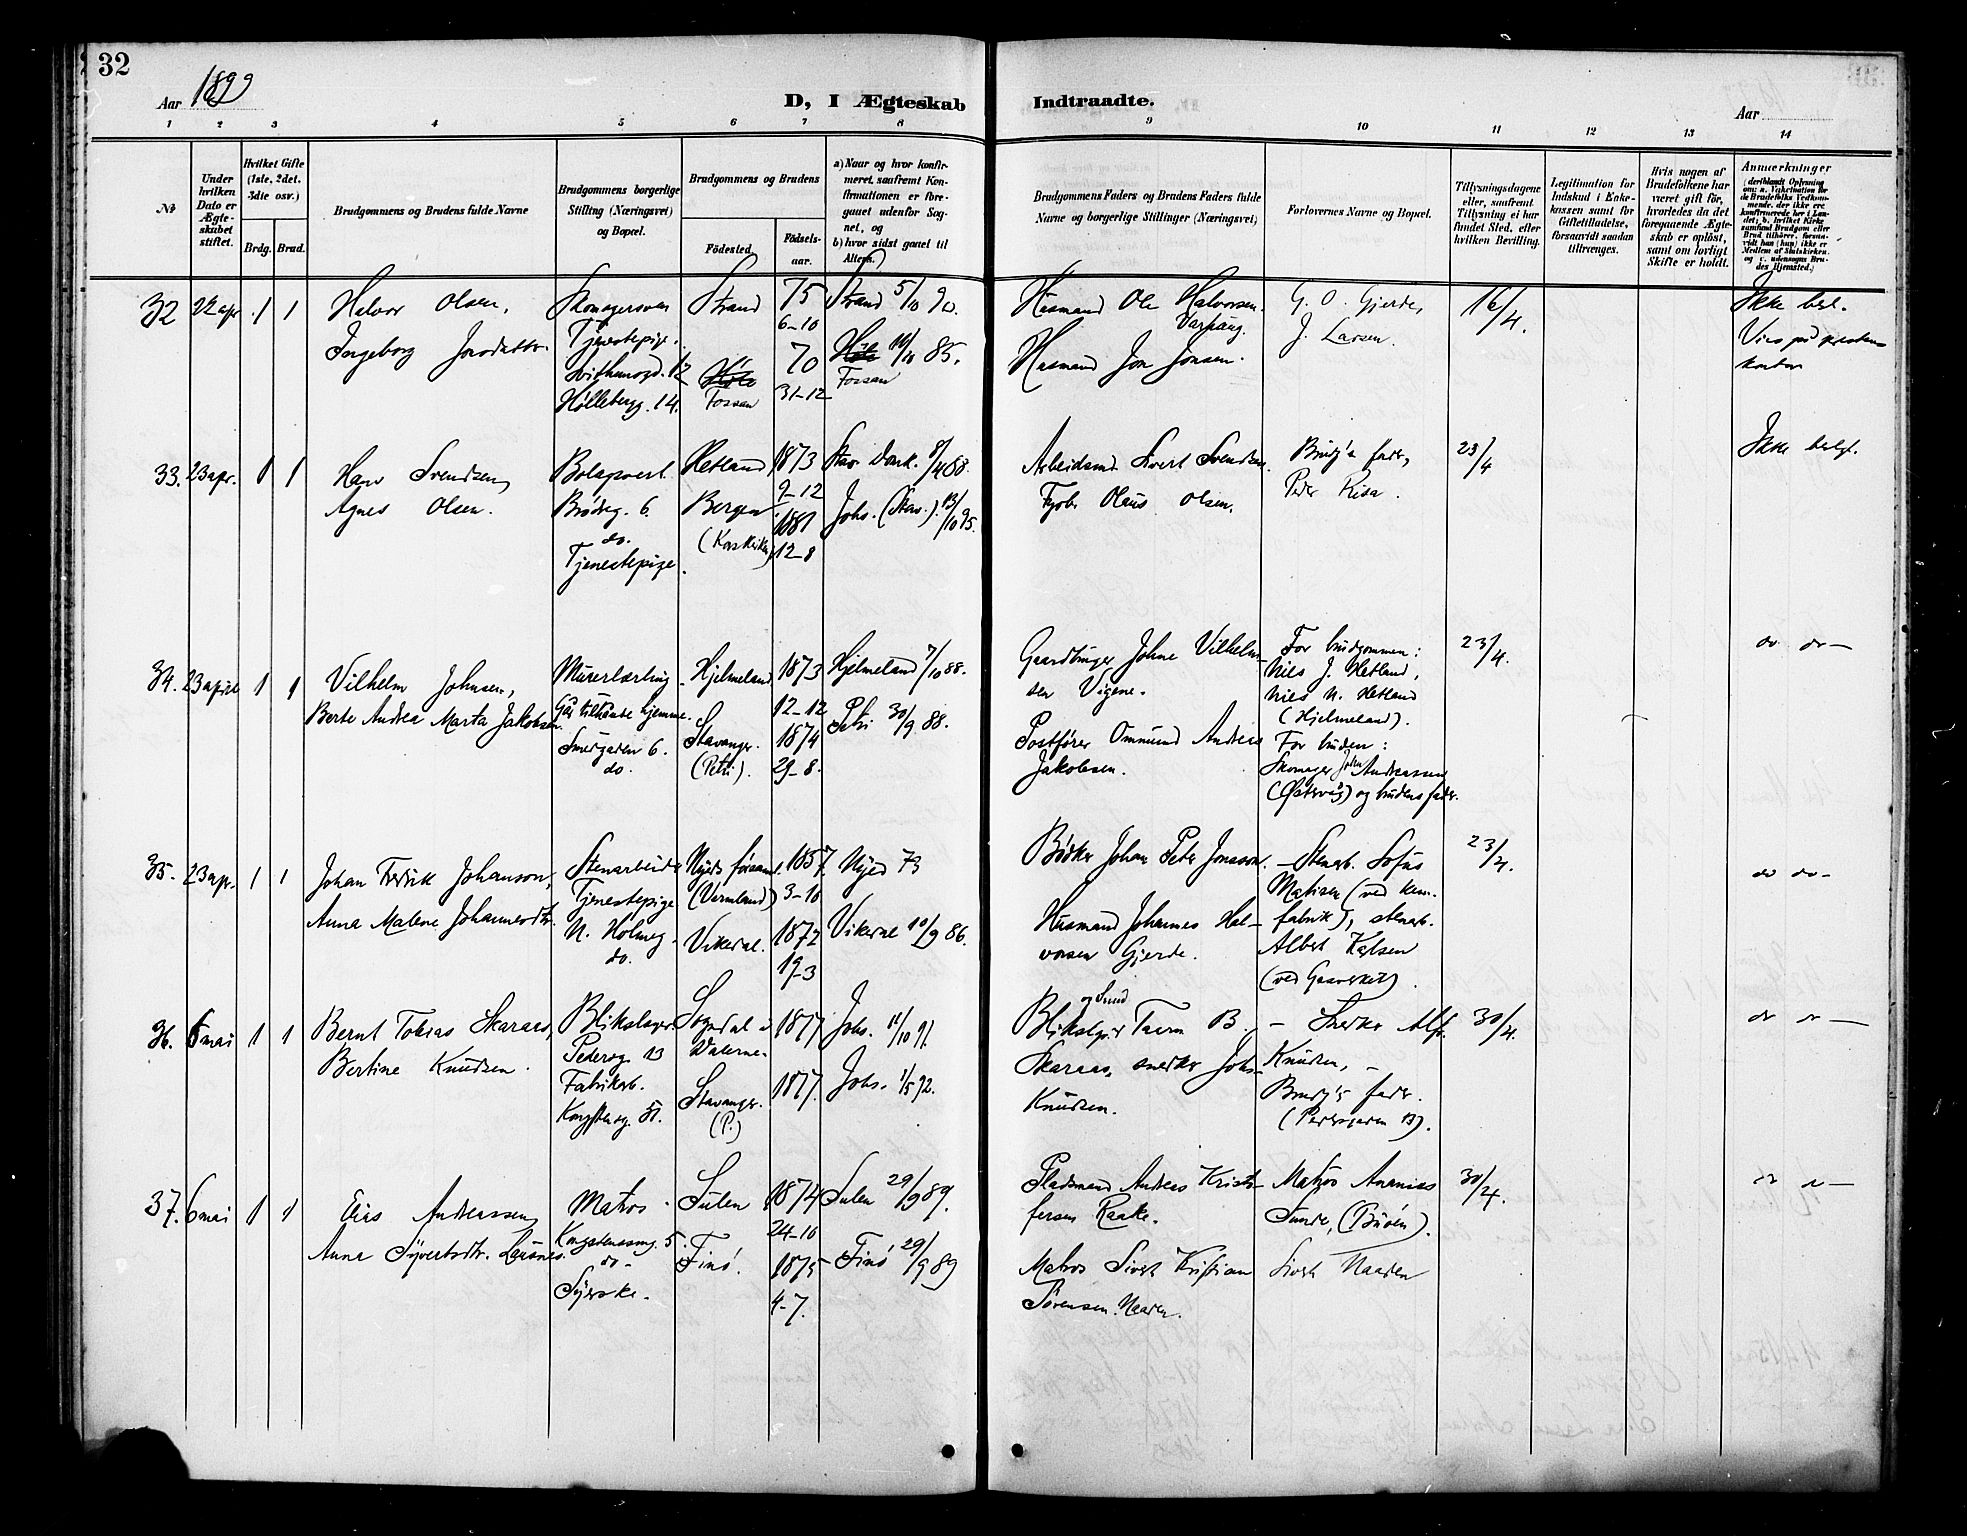 32
Aar 1899
D, I Ægteskab Indtraadte.
Aar
1 2 3 4 5 6 7 8 9 10 11 12 13 14
№
Under hvilken Dato er Ægteskabet stiftet.
Hvilket Gifte (1ste, 2det, 3die osv.)
Brdg. Brud.
Brudgommens og Brudens fulde Navne
Brudgommens borgerlige Stilling (Næringsvei) og Bopæl.
Brudgommens og Brudens
Fødested.
Fødselsaar.
a) Naar og hvor konfirmeret, saafremt Konfirmationen er foregaaet udenfor Sognet, og
b) hvor sidst gaaet til Alters.
Brudgommens Faders og Brudens Faders fulde Navne og borgerlige Stillinger (Næringsvei)
Forlovernes Navne og Bopæl.
Tillysningsdagene eller, saafremt Tillysning ei har fundet Sted, efter hvilken Bevilling.
Legitimation for Indskud i Enkekassen samt for Giftetilladelse, forsaavidt saadan tiltrænges.
Hvis nogen af Brudefolkene har været gift før, hvorledes da det foregaaende Ægteskab er opløst, samt om lovligt Skifte er holdt.
Anmærkninger
32 22 apr. 1 1
Halvor Olsen,
Ingeborg Jonsdatter.
Tjenestepige.
Strand
Fossan
75
6-10
70
31-12
Strand 5/10 90.
85.
Fossan
Husmand Ole Halvorsen
Husmand Jon Jonsen.
G. O. Gjerde,
J. Larsen.
16/4.
Ikke besl.
Vies på prestens kontor
33. 23 apr. 1 1
Hans Svendsen,
Agnes Olsen.
Brødreg. 6.
do.
Tjenestepige.
Hetland
Bergen
(Korskirken)
1873
9-12
1881
12-8
Stav. Domk. 8/4 88.
Johs. (Stav.) 13/10 95.
Arbeidsmd. Sivert Svendsen.
Olaus Olsen.
Brudg's fader,
Peder Risa.
23/4
Ikke beslgt.
34. 23 april 1 1
Vilhelm Johnsen,
Berte Andrea Marta Jakobsen.
Murerlærling
Går tilhånde hjemme.
Smedgaden 6.
do.
Hjelmeland
Stavanger.
(Petri).
1873
12-12
1874
29-8.
Hjelmeland 7/10 88.
Petri 30/9 88.
Gaardbruger Johne Vilhelmsen Vigene.
Postfører Ommund Andreas
Jakobsen.
For brudgommen:
Niels J. Hetland,
Niels N. Hetland
(Hjelmeland).
For bruden:
Skomager John Andreassen
(Østervåg) og brudens fader.
23/4.
do do —
35. 23 apr. 1 1
Johan Fredrik Johanson,
Anna Malene Johannesdtr.
Stenarbeider
Tjenestepige
N. Holmeg.
do.
Nyeds forsaml.
(Vermland)
Vikedal.
1857.
3-10
1872
19-3
Nyed 73
Vikedal 10/9 86.
Bødker Johan Peter Jonsson.
Husmand Johannes Halvorsen Gjerde.
Stenarb. Sofus
Matisen (ved kem.
fabrik), stenarb.
Albert Karlsen
(ved Gasverket).
23/4.
do do -
36. 6 mai 1 1
Bernt Tobias Skaraas,
Bertine Knudsen.
Blikslager
Pedersg. 13
Fabrikarb.
Kongstensg. 51.
Sogndal i
Dalerne.
Stavanger.
(P.)
1877
1877.
Johs. 11/10 91.
Johs. 1/5 92.
Blikslgr. og Smed
B. Skaraas, snedker Johs.
Knudsen.
— Snedker Alf.
Knudsen, —
Brudg's fader.
(Pedersgaden 13).
30/4.
do do —
37. 6 mai 1 1
Elias Andreassen,
Anna Syvertsdtr.
Matros.
Kongstensg. 5.
do -
Syerske.
Sulen
Finö.
1874
24-10
1875
4-7.
Sulen 29/9 89.
Finö 29/9 89
Pladsmand Andreas Kristofersen Raake.
Matros Sivert Kristian
Sørensen Naaden.
Matros Ananias
Sunde, (Buøen).
Sivert Naaden
30/4.
do do —